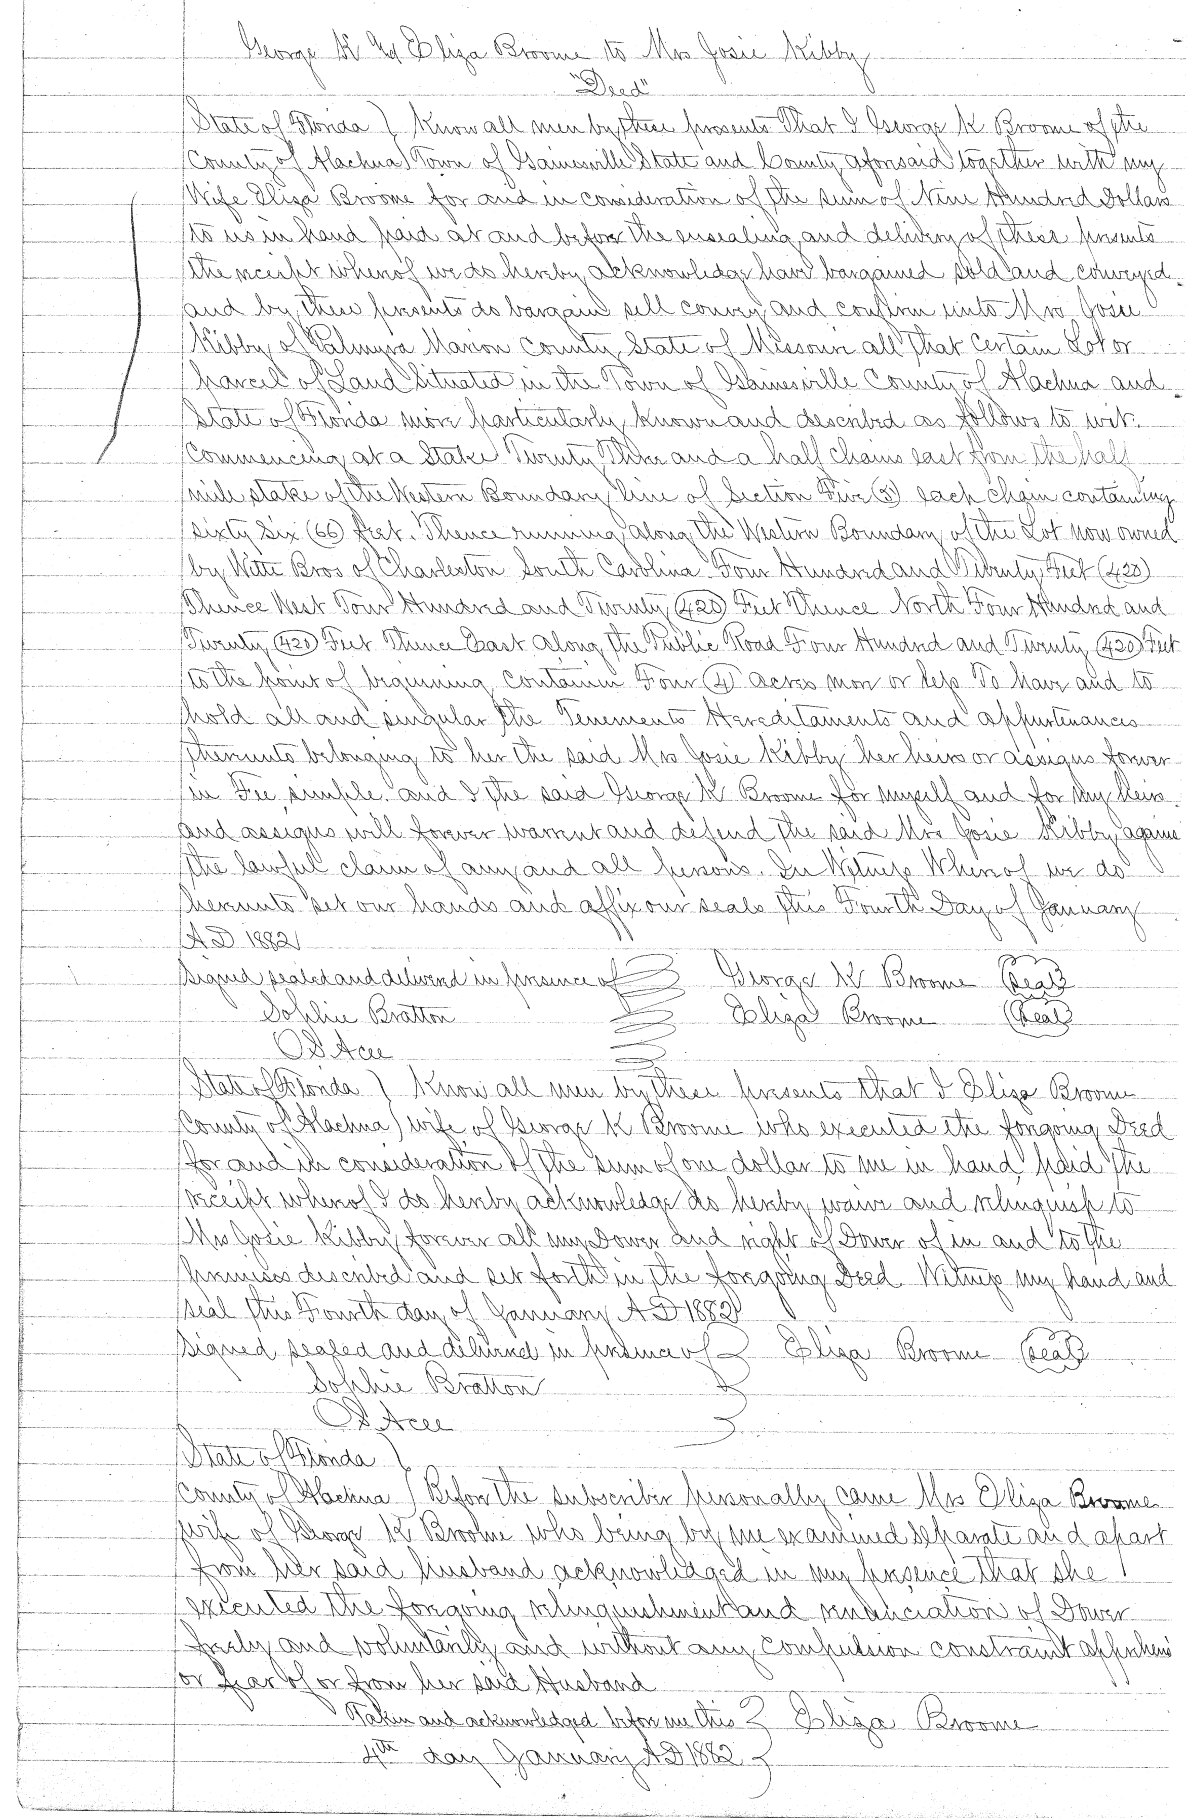 George K & Eliza Broome to Mrs Josie Kibby
"Deed"
State of Florida } Know all men by these presents That I George K Broome of the
County of Alachua } Town of Gainesville State and County aforesaid together with my
Wife Eliza Broome for and in consideration of the sum of Nine Hundred Dollars
to us in hand paid at and before the ensealing and delivery of these presents
the receipt whereof we do hereby acknowledge have bargained sold and conveyed
and by these presents do bargain sell convey and confirm unto Mrs Josie
Kibby of Palmyra Marion County State of Missouri all that certain Lot or
parcel of Land Situated in the Town of Gainesville County of Alachua and
State of Florida more particularly known and described as follows to wit.
Commencing at a Stake Twenty Three and a half chains east from the half
mile stake of the Western Boundary line of Section Five (5) each chain containing
sixty six (66) feet. Thence running along the Western Boundary of the Lot now owned
by Witte Bros of Charleston South Carolina Four Hundred and Twenty Feet (420)
Thence West Four Hundred and Twenty (420) Feet Thence North Four Hundred and
Twenty (420) Feet Thence East Along the Public Road Four Hundred and Twenty (420) Feet
to the point of beginning containin Four (4) acres more or less To have and to
hold all and singular the Tenements Hereditaments and appurtenances
thereunto belonging to her the said Mrs Josie Kibby her heirs or assigns forever
in Fee simple. and I the said George K Broome for myself and for my heirs
and assigns will forever warrent and defend the said Mrs Josie Kibby agains
the lawful claim of any and all persons. In Witness Whereof we do
hereunto set our hands and affix our seals this Fourth Day of January
AD 1882
Signed sealed and delivered in presence of George K Broome (Seal)
Sophie Bratton Eliza Broome (Seal)
O S Acee
State of Florida } Know all men by these presents that I Eliza Broome
County of Alachua } wife of George K Broome who executed the foregoing Deed
for and in consideration of the sum of one dollar to me in hand paid the
receipt whereof I do hereby acknowledge do hereby waive and relinquish to
Mrs Josie Kibby forever all my Dower and right of Dower of in and to the
premises described and set forth in the foregoing Deed Witness my hand and
seal this Fourth day of January AD 1882
Signed sealed and delivered in presence of Eliza Broome (Seal)
Sophie Bratton
O S Acee
State of Florida }
County of Alachua } Before the subscriber personally came Mrs Eliza Broome
wife of George K Broome who being by me examined separate and apart
from her said husband acknowledged in my presence that she
executed the foregoing relinquishment and renunciation of Dower
freely and voluntarily and without any compulsion constraint apprehens
or fear of or from her said Husband
Taken and acknowledged before me this } Eliza Broome
4th day January AD 1882